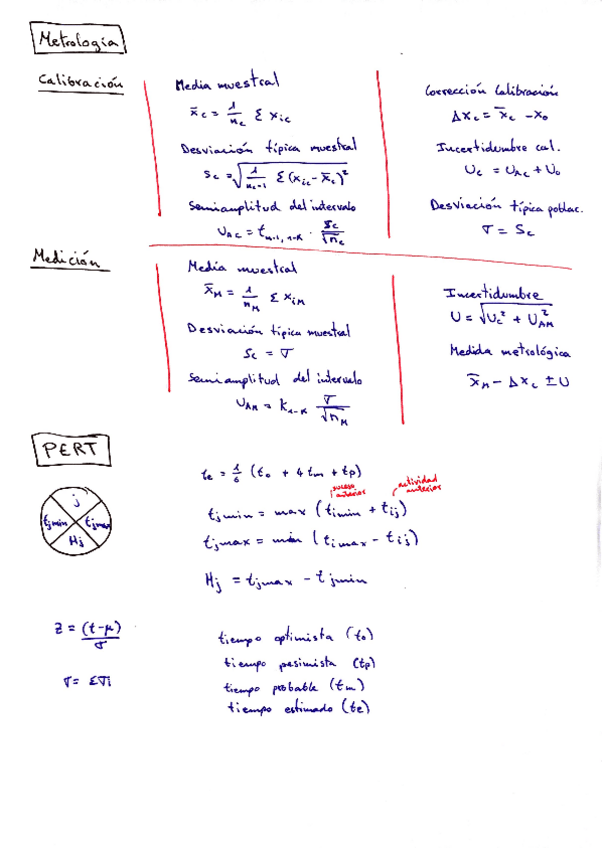 Metrología
Calibración
Media muestral
x̄c = 1/nc Σ xic
Desviación típica muestral
Sc = √(1/(nc-1) Σ (xic - x̄c)²)
Semiamplitud del intervalo
UAc = tn-1, 1-α · Sc/√nc
Corrección Calibración
Δxc = x̄c - x0
Incertidumbre cal.
Uc = UAc + U0
Desviación típica poblac.
σ = Sc
Medición
Media muestral
x̄M = 1/nM Σ xiM
Desviación típica muestral
Sc = σ
Semiamplitud del intervalo
UAM = k1-α σ/√nM
Incertidumbre
U = √(Uc² + UAM²)
Medida metrológica
x̄M - Δxc ± U
PERT
te = 1/6 (to + 4tm + tp)
suceso anterior
actividad anterior
j
tjmin
tjmax
Hj
tjmin = max (timin + tij)
tjmax = min (timax - tij)
Hj = tjmax - tjmin
z = (t-μ)/σ
σ = Σσi
tiempo optimista (to)
tiempo pesimista (tp)
tiempo probable (tm)
tiempo estimado (te)